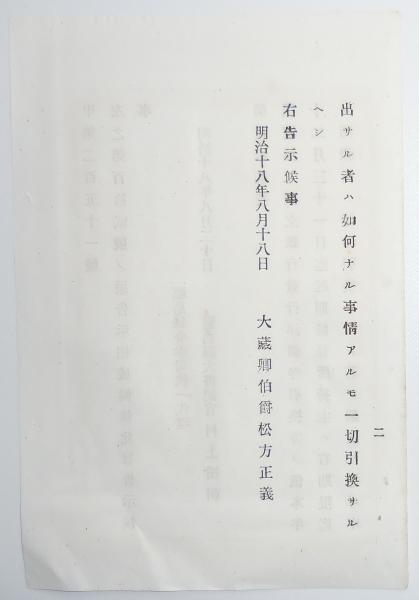 二
出サル者ハ如何ナル事情アルモ一切引換サル
ヘシ
右告示候事
明治十八年八月十八日 大藏卿伯爵松方正義